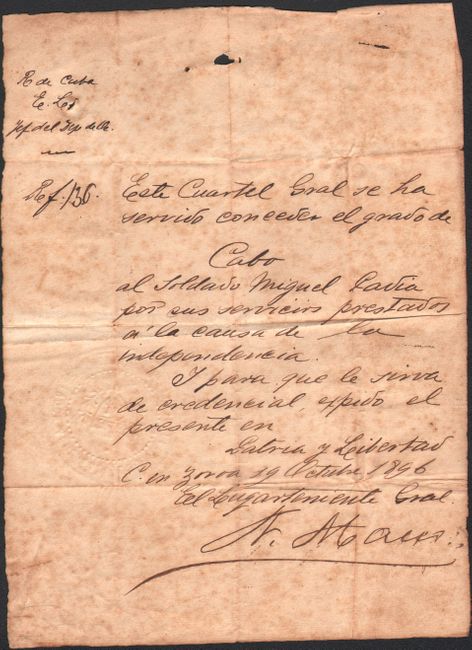 R de Cuba
E. L.
Jef. del Dep de Oc.
Ref. 136.
Este Cuartel Gral se ha
servido conceder el grado de
Cabo
al Soldado Miguel
por sus servicios prestados
á la causa de la
independencia.
I para que le sirva
de credencial, expido el
presente en
Patria y Libertad
C. en 19 Octubre 1896
El Lugarteniente Gral